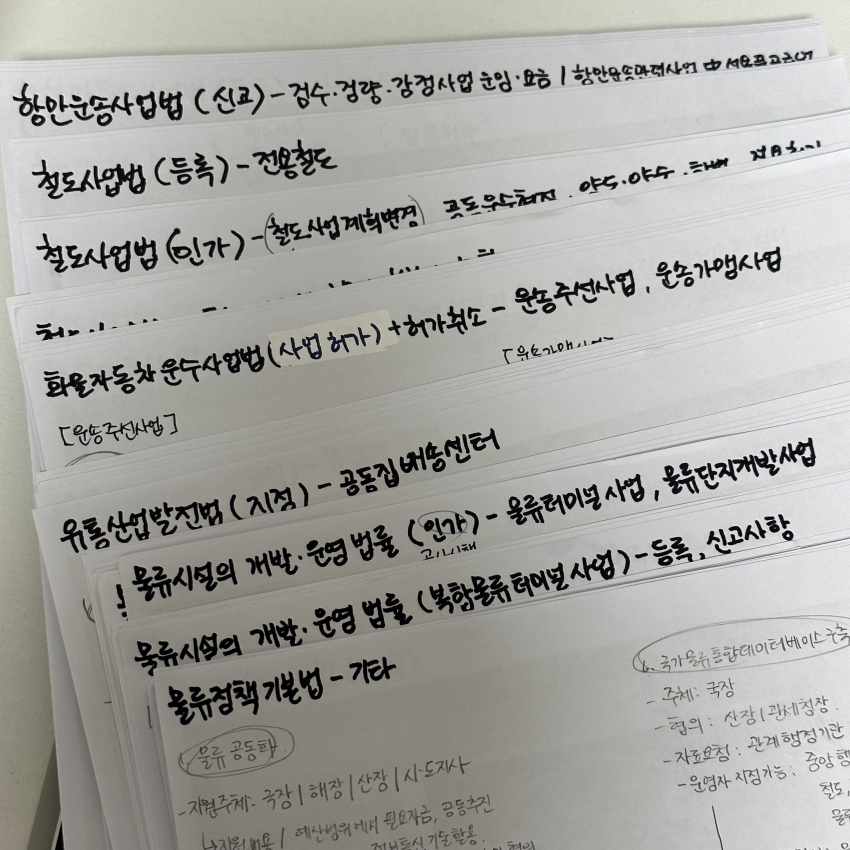 항만운송사업법 (신고) - 검수·검량·감정사업 운임·요금 / 항만운송관련사업 中
철도사업법 (등록) - 전용철도
철도사업법 (인가) - (철도사업계획변경) 공동운수협정, 양도·양수
화물자동차 운수사업법 (사업 허가) + 허가취소 - 운송주선사업, 운송가맹사업
[운송주선사업]
[운송가맹사업]
유통산업발전법 (지정) - 공동집배송센터
물류시설의 개발·운영 법률 (인가) - 물류터미널 사업, 물류단지개발사업
물류시설의 개발·운영 법률 (복합물류터미널사업) - 등록, 신고사항
물류정책기본법 - 기타
물류 공동화
- 지원주체: 국장 | 해장 | 산장 | 시·도지사
예산범위에서 필요자금, 공동추진
6. 국가물류통합데이터베이스 구축
- 주체: 국장
- 협의: 산장 | 관세청장
- 자료요청: 관계 행정기관
- 운영자 지정가능: 중앙행
철도,
물류